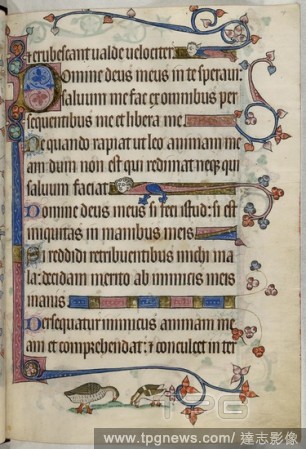 ⁊ erubescant ualde velociter
Domine deus meus in te speraui:
saluum me fac ex omnibus per
sequentibus me et libera me
Ne quando rapiat ut leo animam me
am dum non est qui redimat neqꝫ qui
saluum faciat
Domine deus meus si feci istud: si est
iniquitas in manibus meis
Si reddidi retribuentibus michi ma
la: decidam merito ab inimicis meis
inanis
Persequatur inimicus animam me
am et comprehendat: ⁊ conculcet in ter
TPG
www.tpgnews.com/達志影像